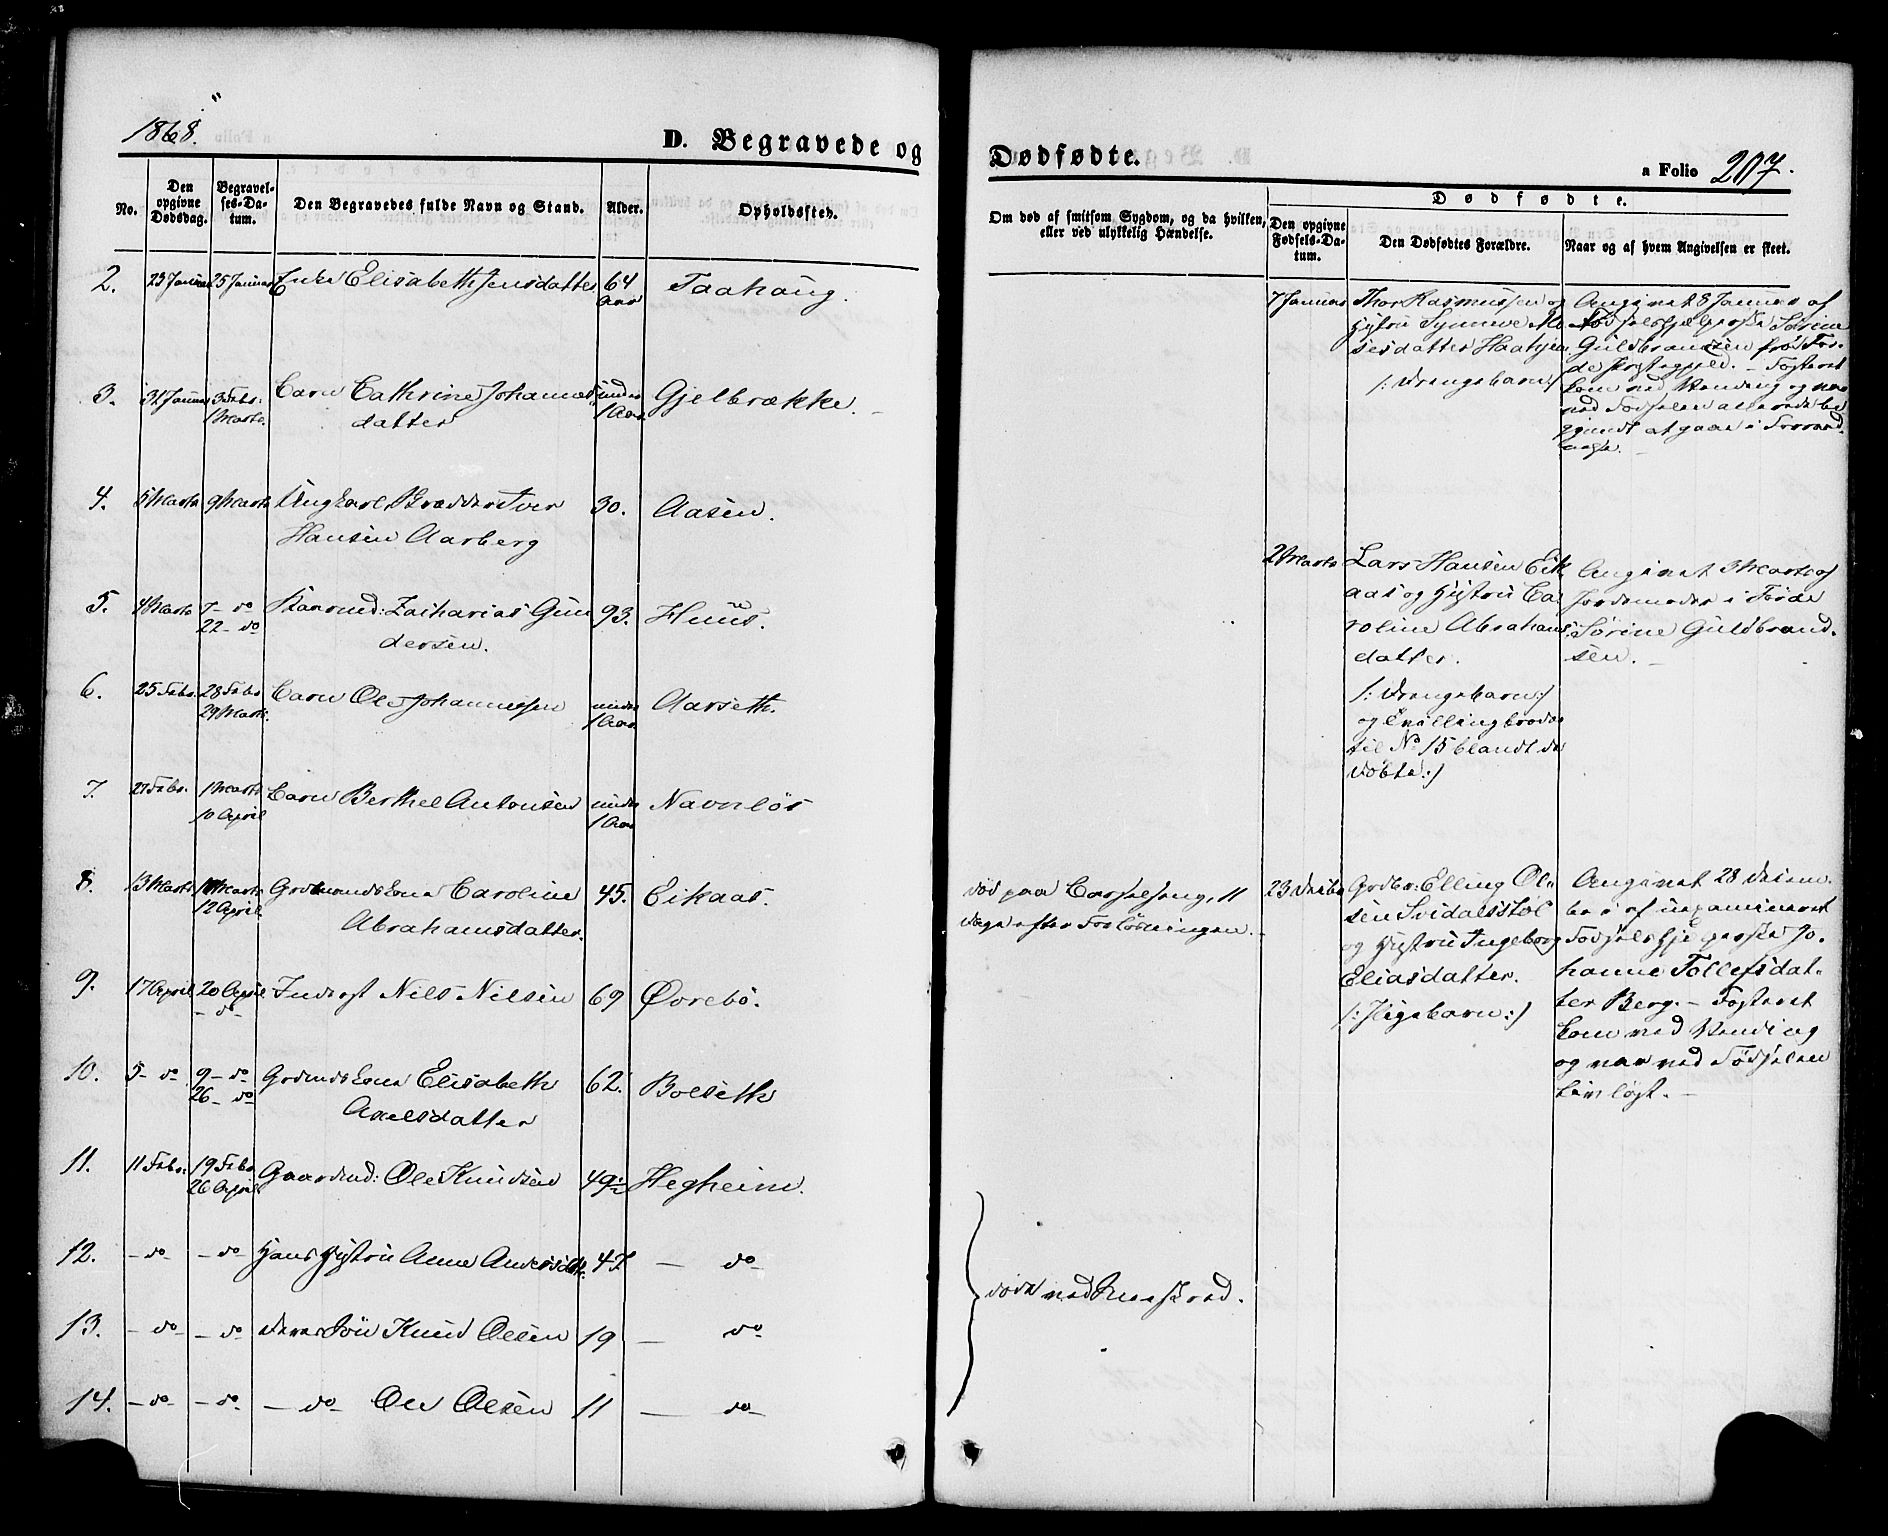 1868.
D. Begravede og
Dødfødte.
a Folio 207.
No.
Den opgivne Dødsdag.
Begravelses-Datum.
Den Begravedes fulde Navn og Stand.
Alder.
Opholdssted.
Om død af smitsom Sygdom, og da hvilken, eller ved ulykkelig Hændelse.
Dødfødte.
Den opgivne Fødsels-Datum.
Den Dødfødtes Forældre.
Naar og af hvem Angivelsen er skeet.
2. 23 Januar 25 Januar Enke Elisabeth Jensdatter 64 Aar Taahaug.
3. 31 Januar 3 Febr: 1 Marts. Barn Cathrine Johannes-
datter under 1 Aar Gjelbrække.
4. 5 Marts 9 Marts Ungkarl Skrædder Iver
Hansen Aarberg 30. Aasen.
5. 4 Marts 7 - do 22 - do Kaarmd: Zacharias Gun
dersen. 93. Huus.
6. 25 Febr. 28 Febr 29 Marts. Barn Ole Johannessen under 1 Aar Aarseth.
7. 27 Febr. 1 Marts 10 April Barn Berthel Antonsen under 1 Aar Navnløs
8. 13 Marts 12 April Caroline
Abrahamsdatter. 45. Eikaas.
død paa Barselseng, 11
Dage efter Forløsningen.
9. 17 April 20 April - do - Inderst Nils Nilsen 69 Øvrebö.
10. 5 - do 9 - do 26 - do Elisabeth
Axelsdatter 62. Bolseth
11. 11 Febr. 19 Febr 26 April Gaardmd: Ole Knudsen 49 1/2 Hegheim.
12. - do - - do - Hans Hustru Anne Andersdtr. 47 - do -
13. - do - - do Deres Sön Knud Olsen 19 - do
14. - do - - do - - do - Ole Olsen 11 - do -
døde ved Sneeskred.
7 Januar Thor Rasmussen og
Hustru Synneve Mo
sesdatter Haatjen
/: Drengebarn :/
Angivet 8 Januar af
Fødselshjelperske Sørine
Guldbrandsen Førde
Præstegjeld. - Fosteret
kom ved Vending og var
ved Fødselen allerede be
gyndt at gaae i Forraad-
nelse.
2 Marts Lars Hansen Eik
aas og Hustru Ca
roline Abrahams
datter.
/: Drengebarn :/
og Tvillingbroder
til No 15 blandt de
døbte :/
Angivet 3 Marts af
Jordemoder i Førde
Sørine Guldbrand-
sen.
23 Decbr Grdbr: Elling Ol-
sen Svidalsstøl
og Hustru Ingeborg
Eliasdatter.
/: Pigebarn :/
Angivet 28 Decem-
ber af uexamineret
Fødselshjelperske Jo-
hanne Tollefsdat-
ter Berg. - Fosteret
kom ved Vending
og var ved Fødselen
livløst. -